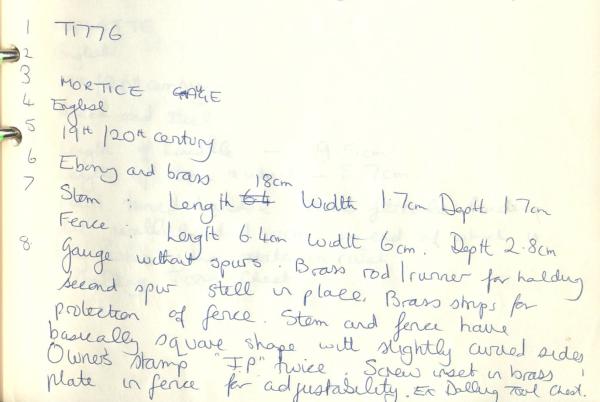 1 T1776
2
3 MORTICE GAUGE
4 English
5 19th/20th century
6 Ebony and brass
7 Stem : Length 64 18cm Width 1.7cm Depth 1.7cm
Fence : Length 6.4cm Width 6cm. Depth 2.8cm
8 Gauge without spurs. Brass rod/runner for holding
second spur still in place. Brass strips for
protection of fence. Stem and fence have
basically square shape with slightly curved sides
Owner's stamp "I.P." twice. Screw inset in brass
plate in fence for adjustability. Ex Tool Chest.